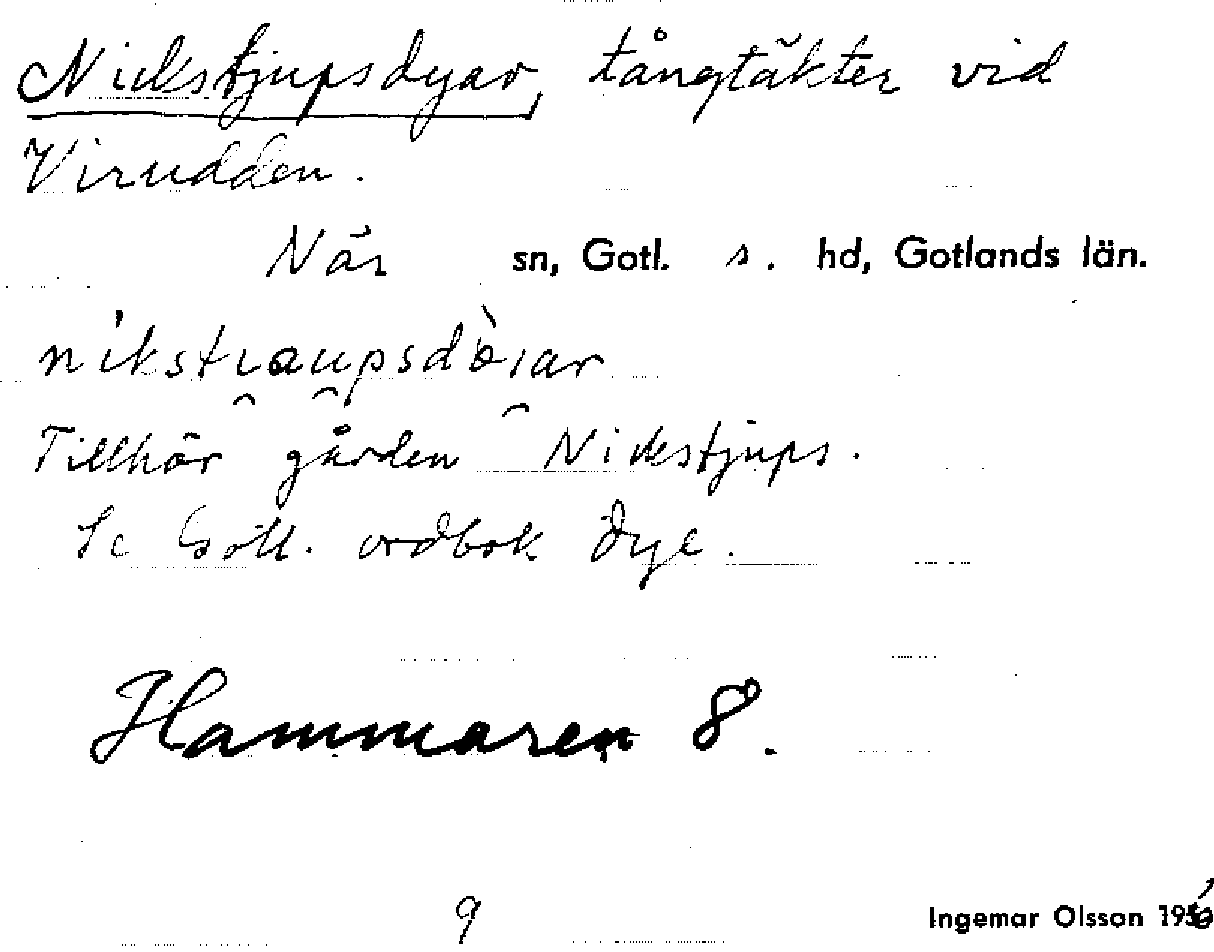 Nickstjupsdyar, tångtäkter vid
Virudden.
När sn, Gotl. s. hd, Gotlands län.
nikstı̯au̯psdòı̯ar
Tillhör gården Nickstjups.
Se Gotl. ordbok dye.
Hammaren 8.
9
Ingemar Olsson 1956